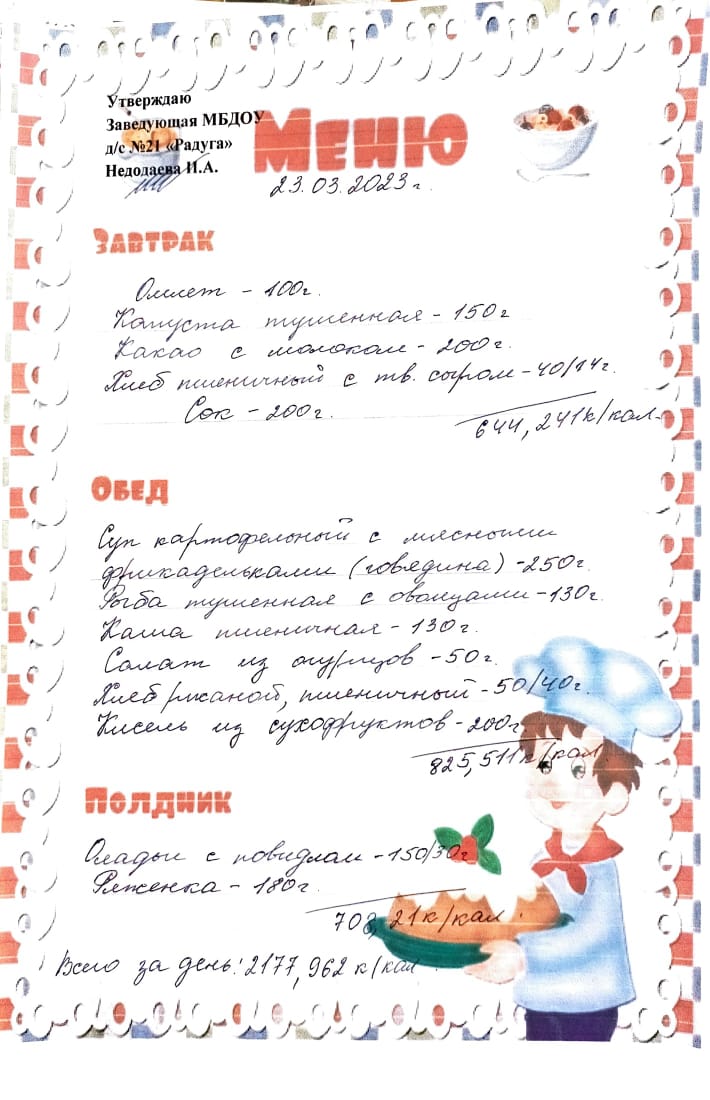 Утверждаю
Заведующая МБДОУ
д/с №21 «Радуга»
Недодаева И.А.
Меню
23.03.2023г.
Завтрак
Омлет - 100г.
Капуста тушенная - 150г
Какао с молоком - 200г.
Хлеб пшеничный с тв. сыром - 40/14г.
Сок - 200г.
644,241к/кал.
Обед
Суп картофельный с мясными
фрикадельками (говядина) - 250г.
Рыба тушенная с овощами - 130г.
Каша пшеничная - 130г.
Салат из огурцов - 50г.
Хлеб ржаной, пшеничный - 50/40г.
Кисель из сухофруктов - 200г.
825,511к/кал.
Полдник
Оладьи с повидлом - 150/30г
Ряженка - 180г.
708,21к/кал.
Всего за день: 2177,962 к/кал.